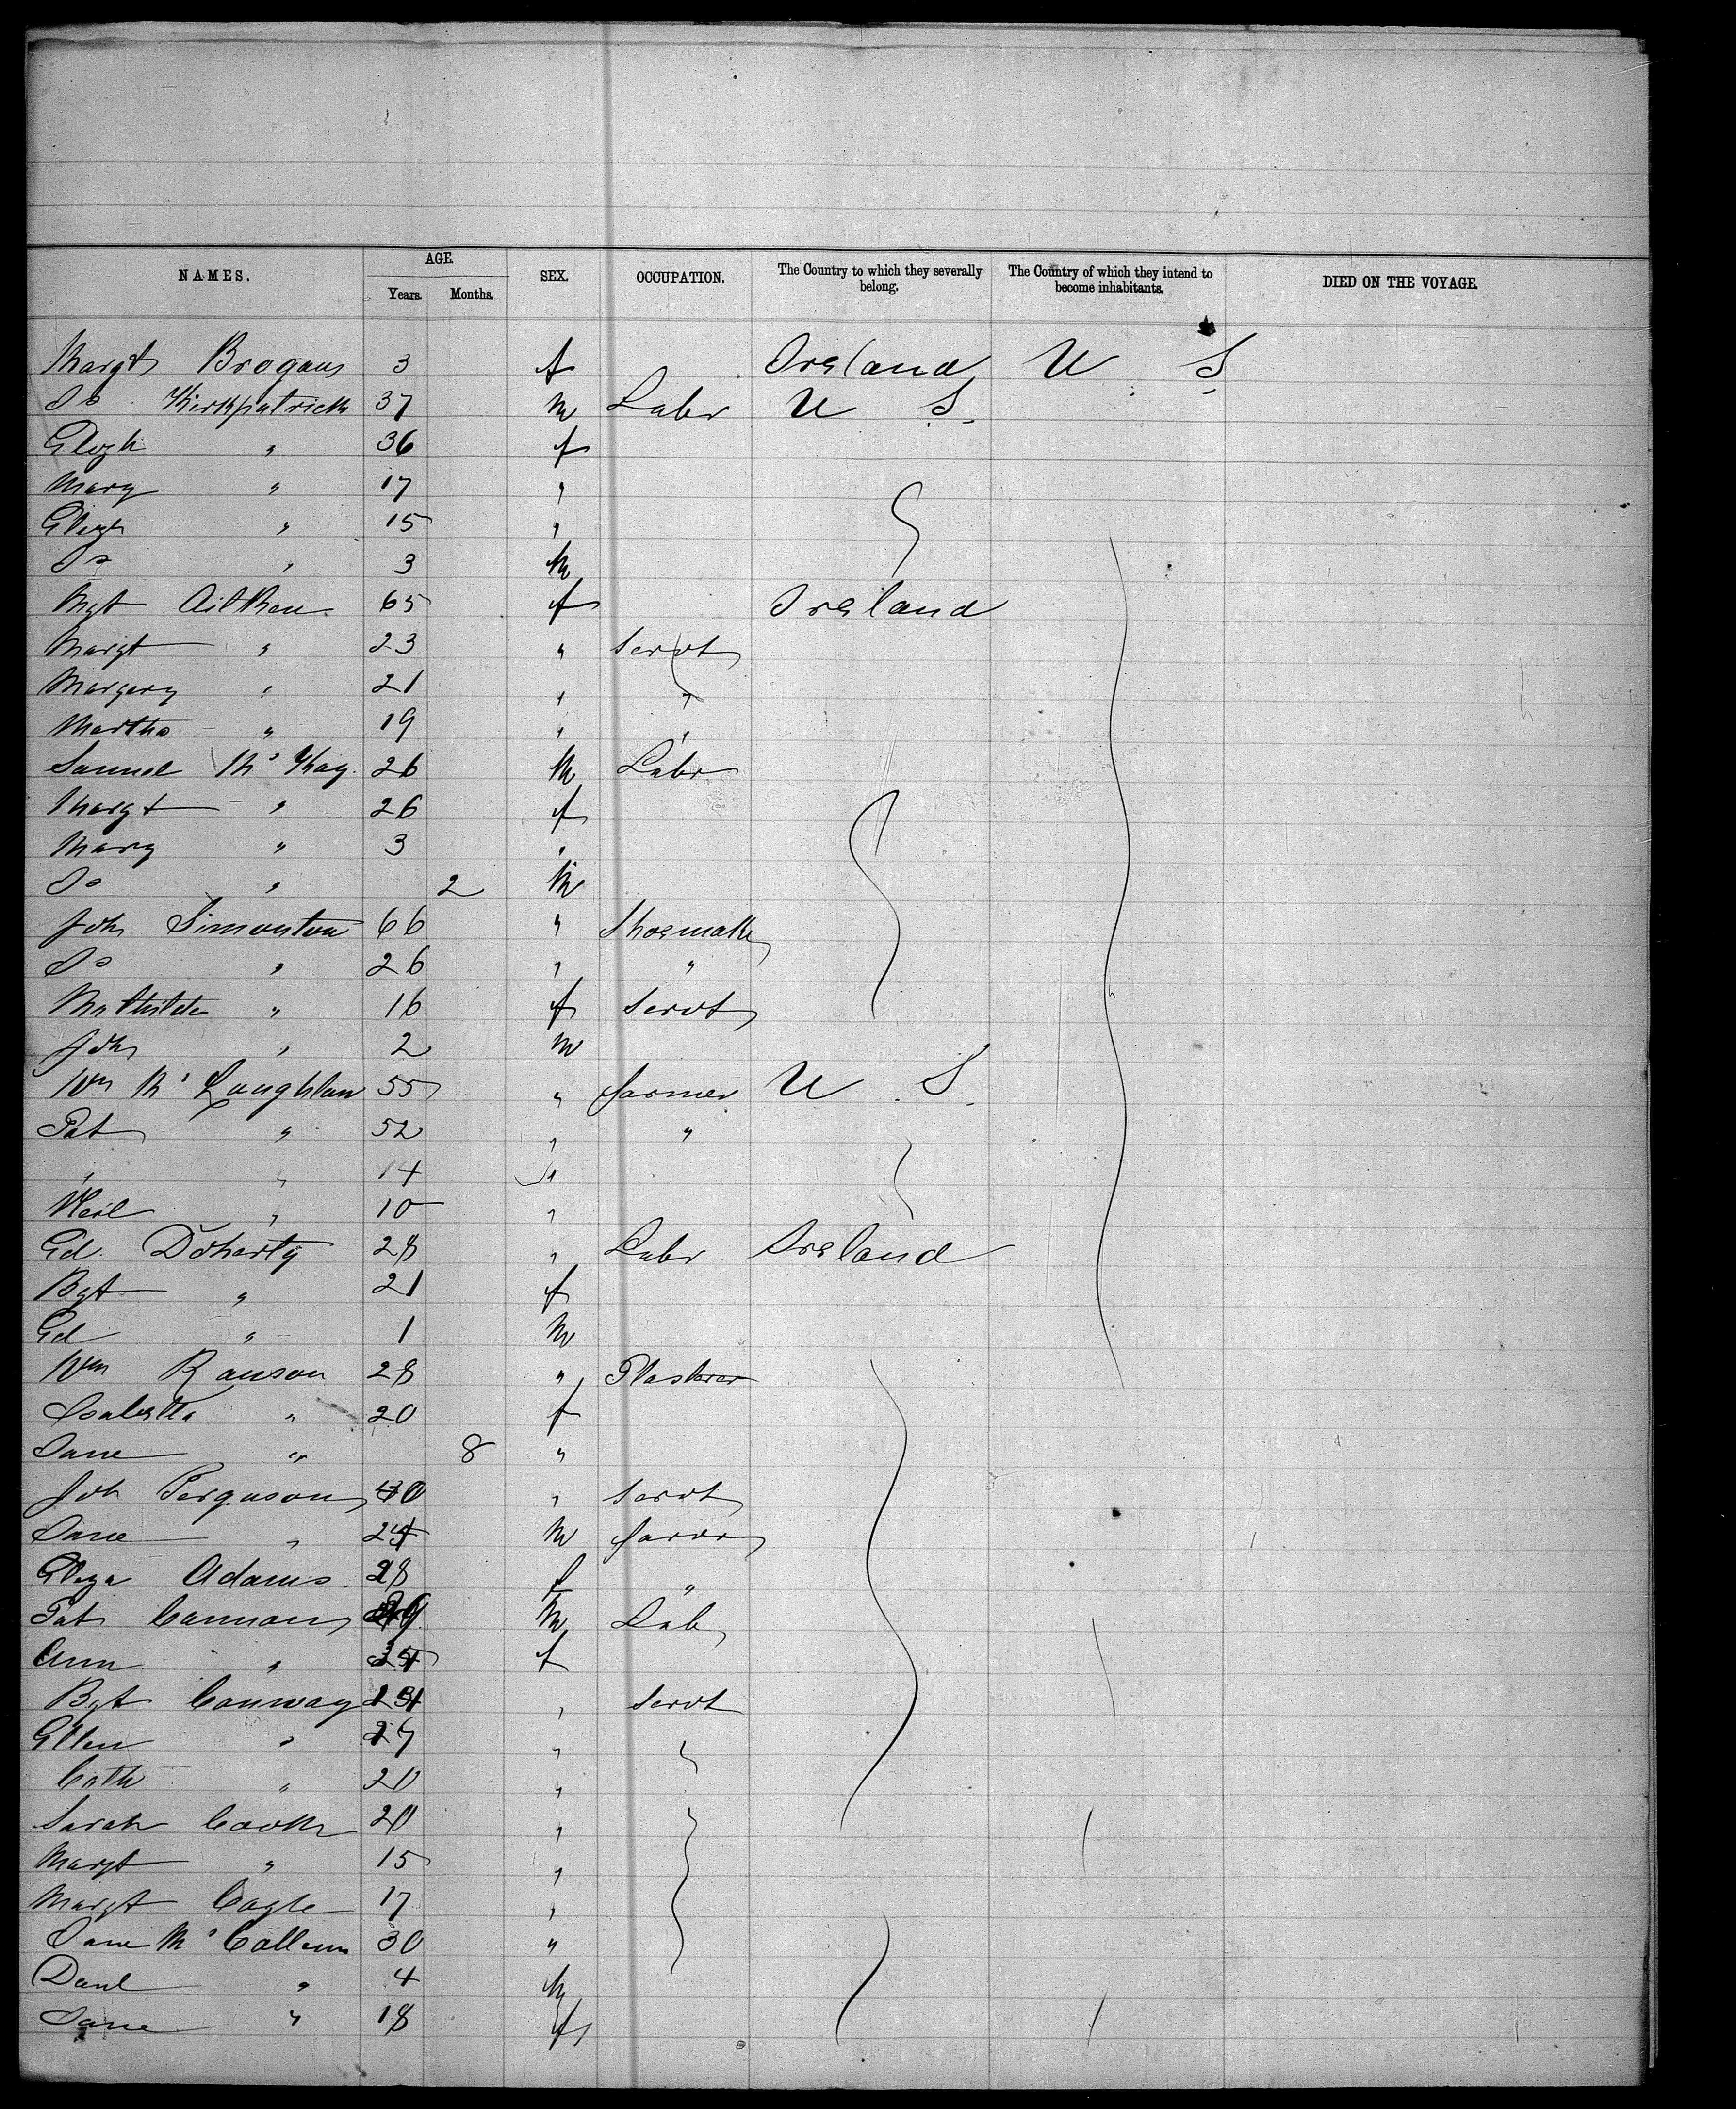 NAMES. AGE. SEX. OCCUPATION. The Country to which they severally belong. The Country of which they intend to become inhabitants. DIED ON THE VOYAGE.
Years. Months.
Margt Brogan 3 f Ireland U S
Js Kirkpatrick 37 m Labr U S.
Elizth " 36 f
Mary " 17 "
Elizh " 15 "
Js " 3 m
Mgt Aitken 65 f Ireland
Margt " 23 " Servt
Margery " 21 " "
Martha " 19 " "
Samuel McKay 26 m Labr
Margt " 26 f
Mary " 3 "
Js " 2 m
Joh Simonton 66 " Shoemak
Js " 26 " "
Mathilde " 16 f Servt
Joh " 2 m
Wm McLoughlan 55 " farmer U S.
Pat " 52 " "
" " 14 "
Neil " 10 "
Ed. Doherty 28 " Labr Ireland
Bgt " 21 f
Ed " 1 m
Wm Ranson 28 " Plasterer
Isabella " 20 f
Jane " 8 "
Joh Ferguson 30 " Servt
Jane " 24 m
Eliza Adams 28 f "
Pat Cannon m Lab
Ann " f
Bgt Conway " Servt
Ellen " "
Cath " 20 "
Sarah Cook 20 "
Margt " 15 "
Margt Cogle 17 "
Jane McCallum 30 "
Danl " 4 m
Jane " 18 f